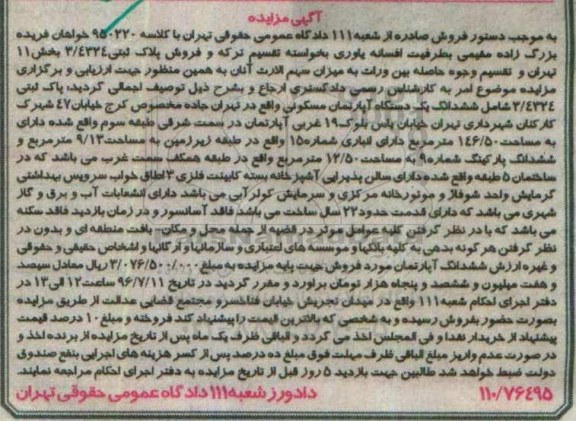 آگهی مزایده
به موجب دستور فروش صادره از شعبه ۱۱۱ دادگاه عمومی حقوقی تهران با کلاسه ۹۵۰۲۲۰ خواهان فریده
بزرگ زاده مقیمی بطرفیت افسانه یاوری بخواسته تقسیم ترکه و فروش پلاک ثبتی ۳/۴۳۲۴ بخش ۱۱
تهران و تقسیم وجوه حاصله بین وراث به میزان سهم الارث آنان به همین منظور جهت ارزیابی و برگزاری
مزایده موضوع امر به کارشناس رسمی دادگستری ارجاع و بشرح ذیل توصیف اجمالی گردید، پاک ثبتی
۳/۴۳۲۴ شامل ششدانگ یک دستگاه آپارتمان مسکونی واقع در تهران جاده مخصوص کرج خیابان ۴۷ شهرک
کارکنان شهرداری تهران خیابان یاس بلوک ۱۹ غربی آپارتمان در سمت شرقی طبقه سوم واقع شده دارای
به مساحت ۱۴۶/۵۰ مترمربع دارای انباری شماره ۱۵ واقع در طبقه زیرزمین به مساحت ۹/۱۳ مترمربع و
ششدانگ پارکینگ شماره ۹ به مساحت ۱۲/۵۰ مترمربع واقع در طبقه همکف سمت غرب می باشد که در
ساختمان ۵ طبقه واقع شده دارای سالن پذیرایی آشپزخانه بسته کابینت فلزی ۳ اطاق خواب سرویس بهداشتی
گرمایش واحد شوفاژ و موتورخانه مرکزی و سرمایش کولر آبی می باشد دارای انشعابات آب و برق و گاز
شهری می باشد که دارای قدمت حدود ۲۲ سال ساخت می باشد فاقد آسانسور و در زمان بازدید فاقد سکنه
می باشد که با در نظر گرفتن کلیه عوامل موثر در قضیه از جمله محل و مکان- بافت منطقه ای و بدون در
نظر گرفتن هر گونه بدهی به کلیه بانکها و موسسه های اعتباری و سازمانها و ارگانها و اشخاص حقیقی و حقوقی
و غیره ارزش ششدانگ آپارتمان مورد فروش جهت پایه مزایده به مبلغ ۳/۰۷۶/۵۰۰/۰۰۰ ریال معادل سیصد
و هفت میلیون و ششصد و پنجاه هزار تومان براورد و مقرر گردید در تاریخ ۹۶/۷/۱۱ ساعت ۱۲ الی ۱۳ در
دفتر اجرای احکام شعبه ۱۱۱ واقع در میدان تجریش خیابان فناخسرو مجتمع قضایی عدالت از طریق مزایده
بصورت حضور بفروش رسیده و به شخصی که بالاترین قیمت را پیشنهاد کند فروخته و مبلغ ۱۰ درصد قیمت
پیشنهاد از خریدار نقدا و فی المجلس اخذ می گردد و الباقی ظرف یک ماه پس از تاریخ مزایده از برنده اخذ و
در صورت عدم واریز مبلغ الباقی ظرف مهلت فوق مبلغ ده درصد پس از کسر هزینه های اجرایی بنفع صندوق
دولت ضبط خواهد شد طالبین جهت بازدید ۵ روز قبل از تاریخ مزایده به دفتر اجرای احکام مراجعه نمایند.
۱۱۰/۷۶۴۹۵ دادورز شعبه ۱۱۱ دادگاه عمومی حقوقی تهران